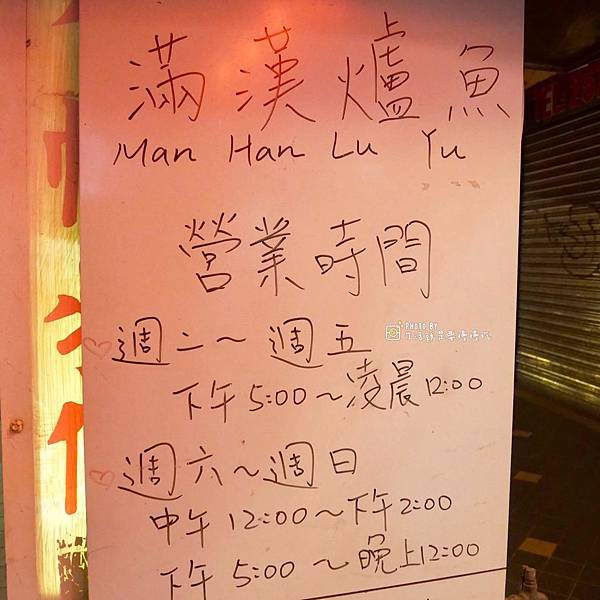 滿漢爐魚
Man Han Lu Yu
營業時間
週二～週五
下午5:00～凌晨12:00
週六～週日
中午12:00～下午2:00
下午5:00～晚上12:00
PHOTO BY